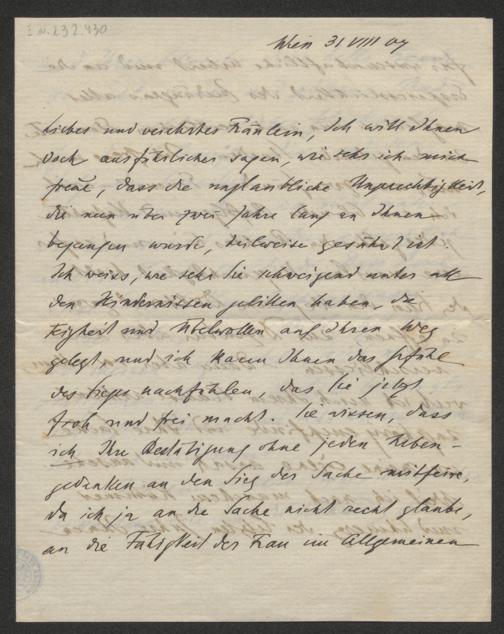 I.N. 232.430
Wien 31 VIII 07
Liebes und verehrtes Fräulein, Ich will Ihnen
doch ausführlicher sagen, wie sehr ich mich
freue, dass die unglaubliche Ungerechtigkeit,
die nun über zwei Jahre lang an Ihnen
begangen wurde, teilweise gesühnt ist
Ich weiss, wie sehr Sie schweigend unter all
den Hindernissen gelitten haben, die
Feigheit und Übelwollen auf Ihren Weg
gelegt, und ich kann Ihnen das Gefühl
des Sieges nachfühlen, das Sie jetzt
froh und frei macht. Sie wissen, dass
ich Ihre Bestätigung ohne jeden Neben-
gedanken an den Sieg der Sache mitfeire,
da ich ja an die Sache nicht recht glaube,
an die Fähigkeit der Frau im Allgemeinen